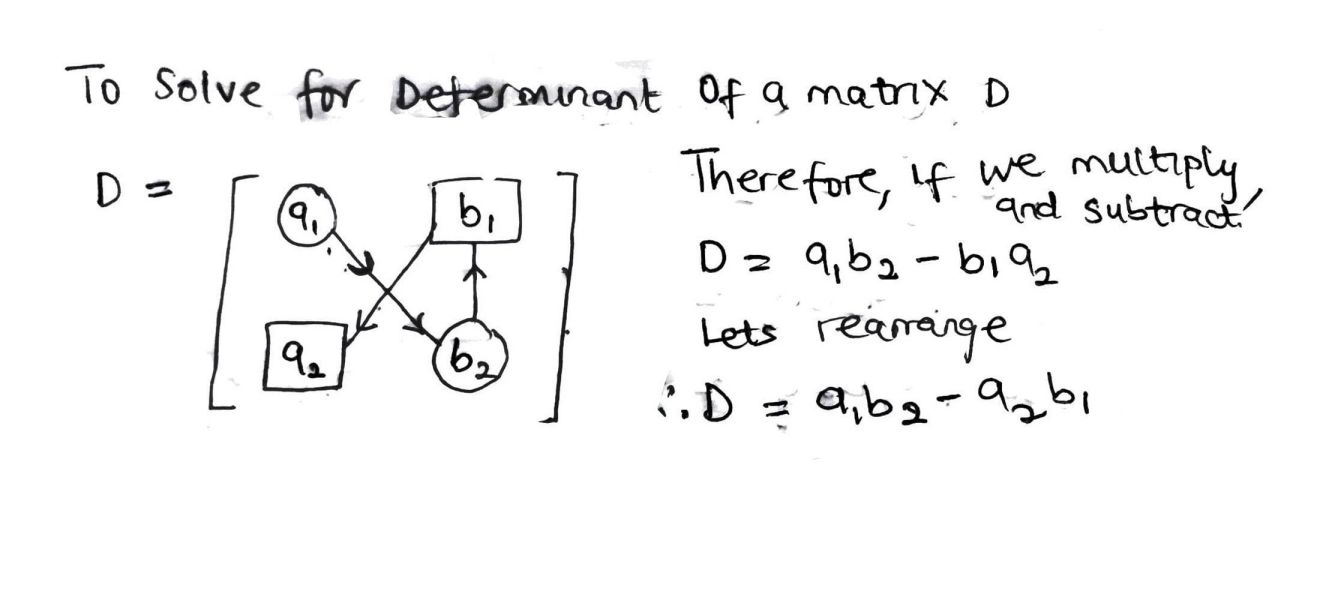 To Solve for Determinant Of a matrix D
D = [ a₁ b₁
a₂ b₂ ]
Therefore, if we multiply,
and subtract!
D = a₁b₂ - b₁a₂
Lets rearrange
∴ D = a₁b₂ - a₂b₁